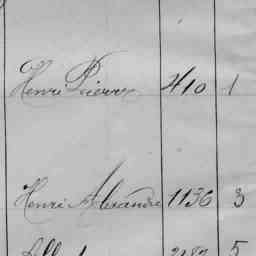 Henri Pierre 410 1
Henri Alexandre 1136 3
5